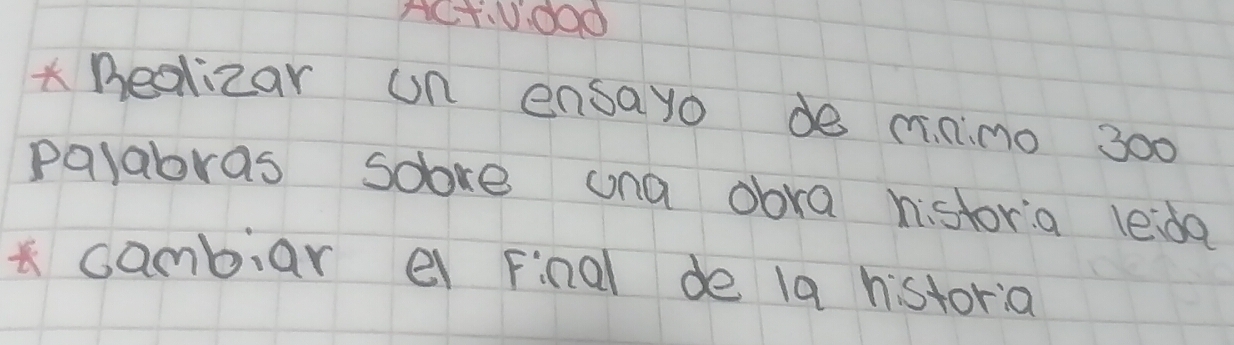 Actividad
* Realizar un ensayo de minimo 300
palabras sobre una obra historia leida
* cambiar el Final de la historia